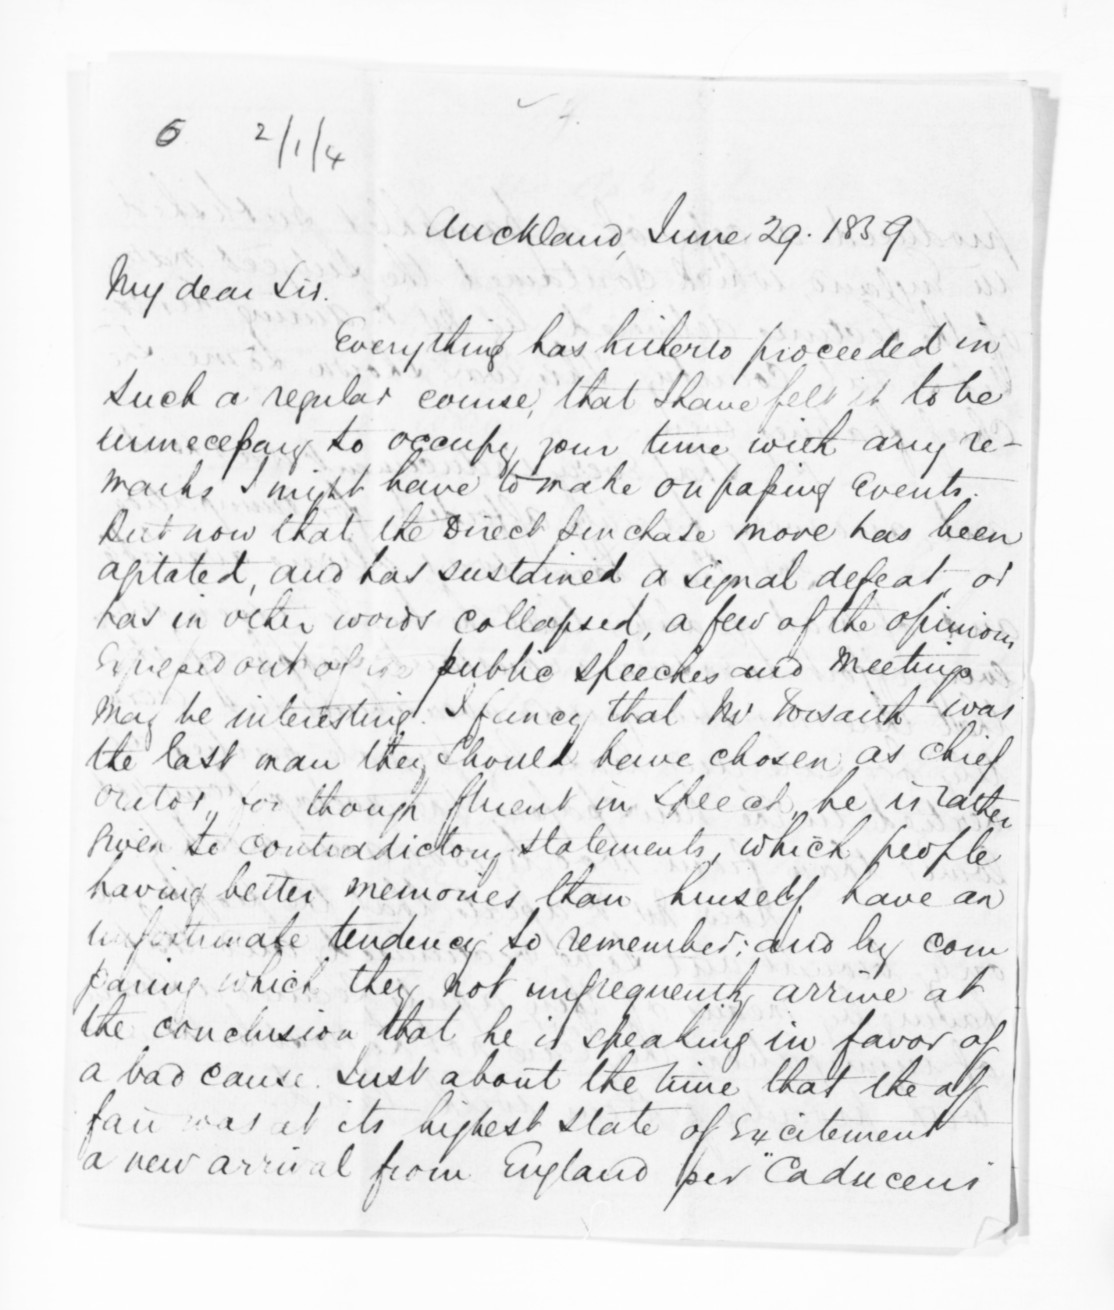 6 2/1/4
Auckland, June 29. 1859
My dear Sir.
Everything has hitherto proceeded in
such a regular course, that I have felt it to be
unnecessary to occupy your time with any re-
marks I might have to make on passing Events.
But now that the Direct purchase move has been
agitated, and has sustained a signal defeat, or
has in other words collapsed, a few of the opinions
Expressed out of public speeches and Meetings
may be interesting. I fancy that Mr Forsaith was
the last man they should have chosen as chief
orator, for though fluent in speech, he is rather
given to contradictory statements, which people
having better memories than himself have an
unfortunate tendency to remember; and by com
paring which they not unfrequently arrive at
the conclusion that he is speaking in favor of
a bad cause. Just about the time that the af
fair was at its highest state of Excitement
a new arrival from England per "Caduceus"